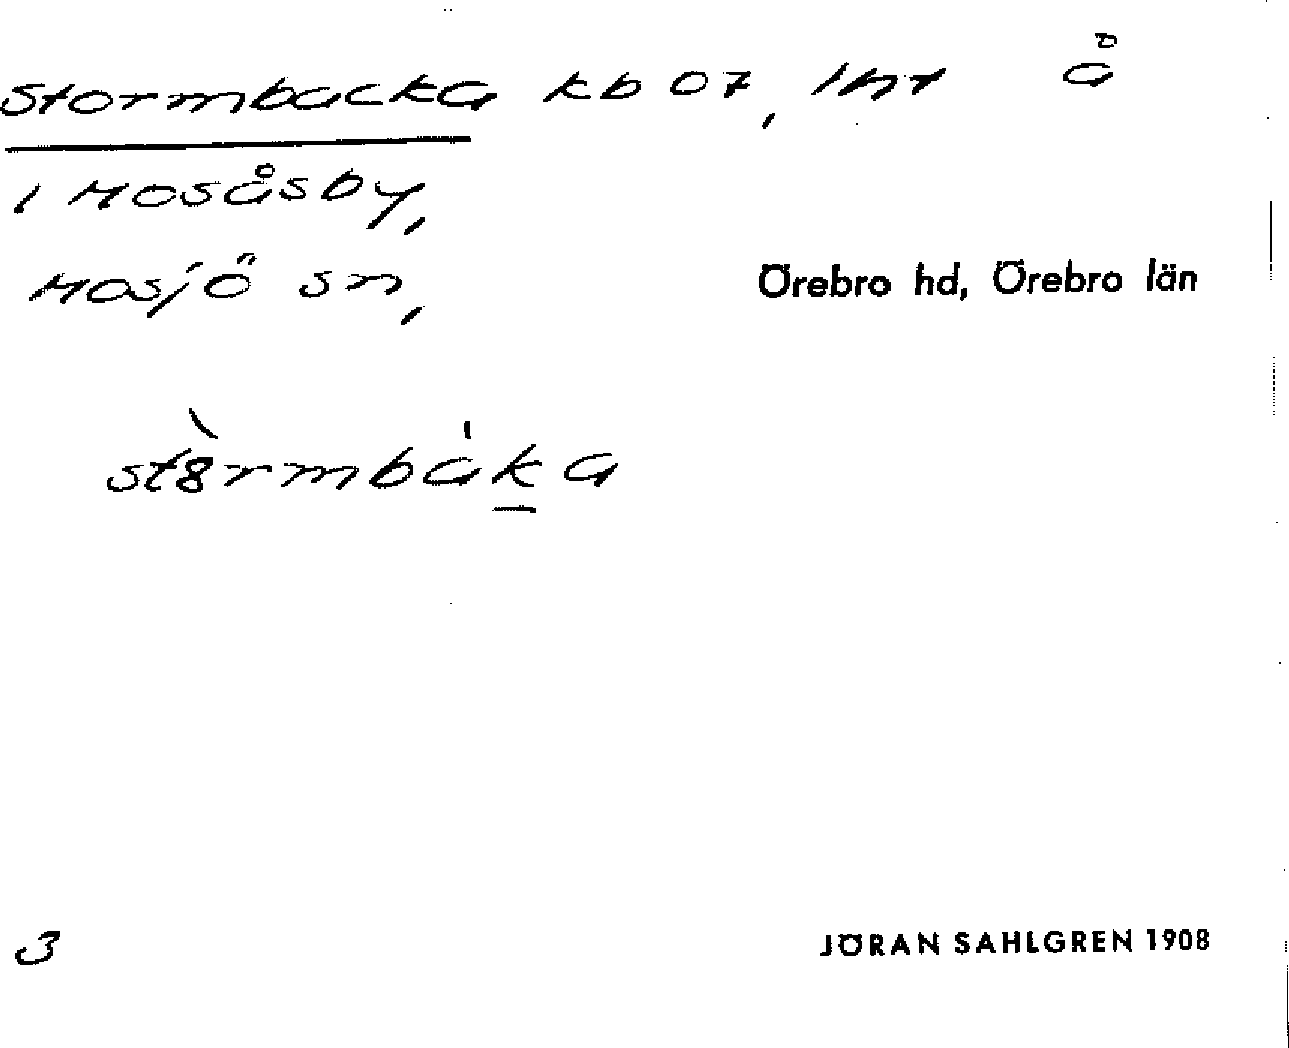 Stormbacka kb 07, Int å
i Mosåsby,
Mosjö sn, Örebro hd, Örebro län
stȣ̀rmbáḵa
3 JÖRAN SAHLGREN 1908